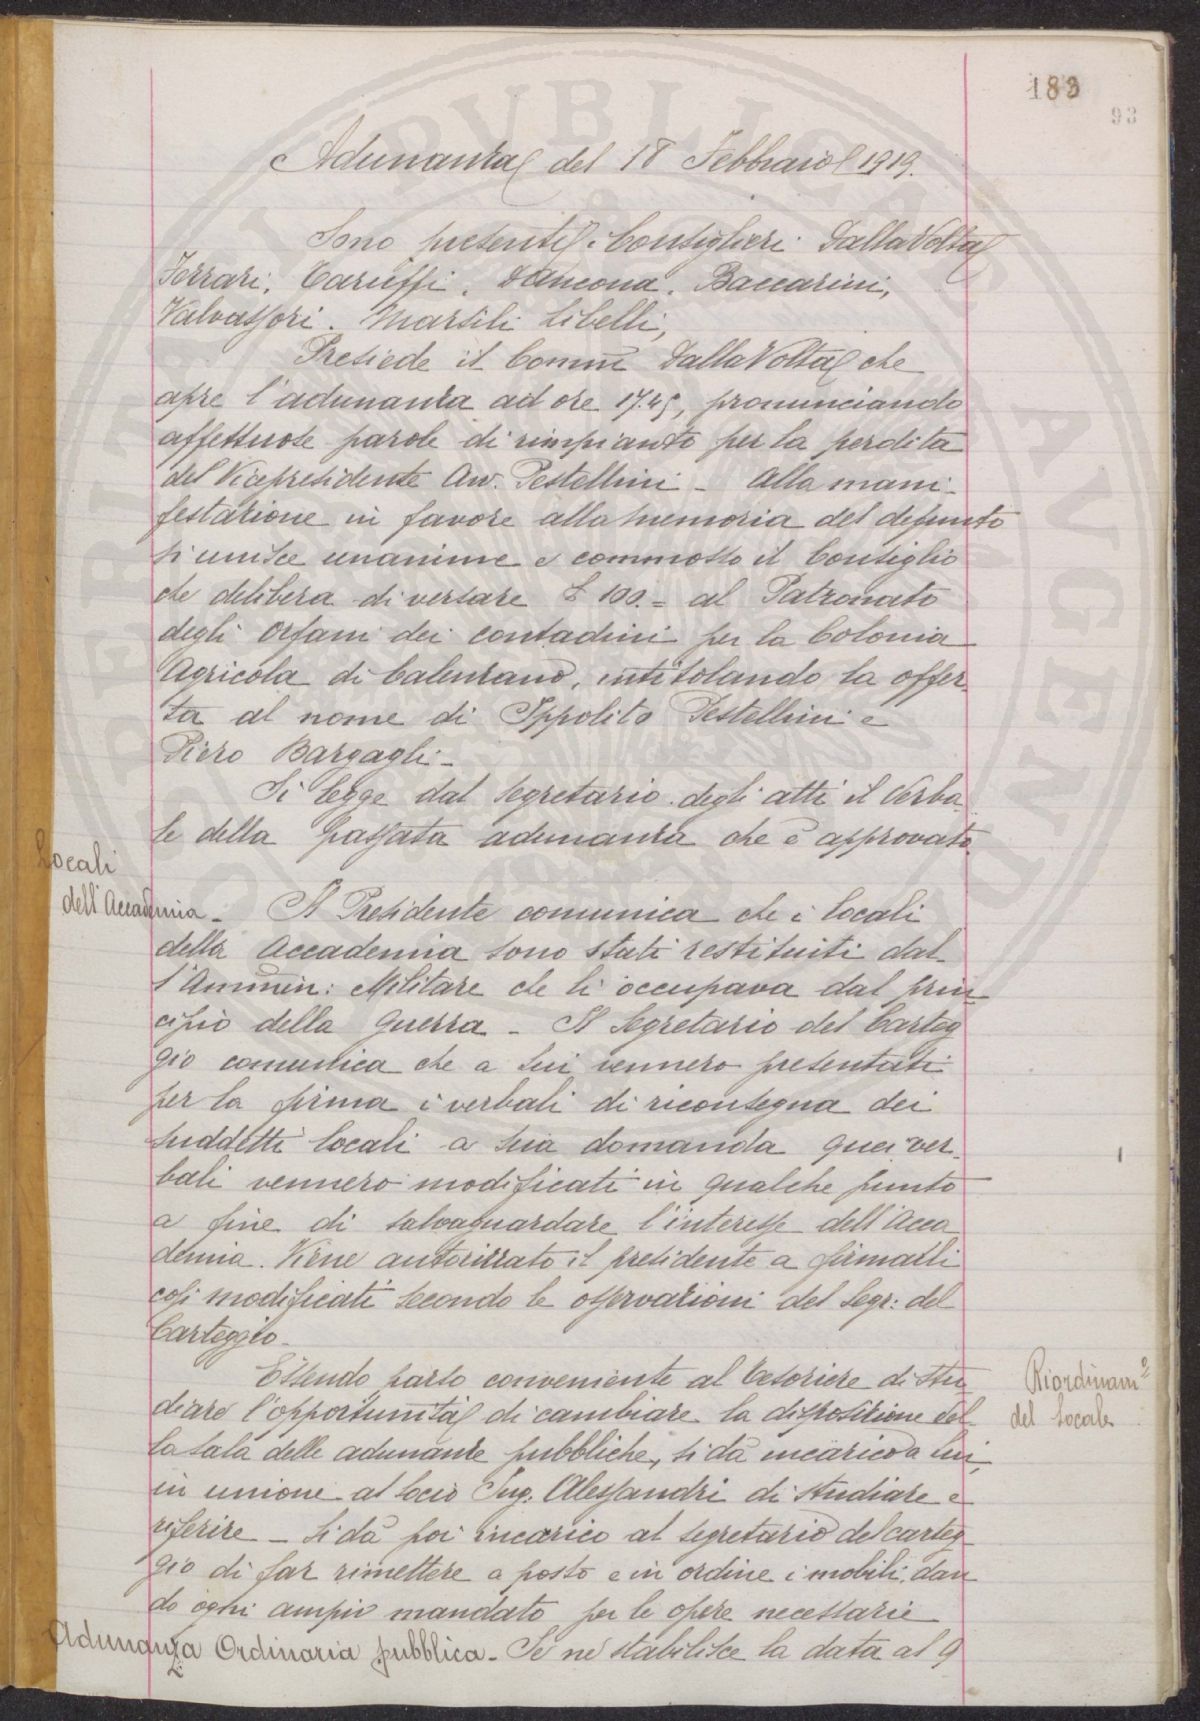 183
93
Adunanza del 18 Febbraio 1919.
Sono presenti i Consiglieri: Dalla Volta
Ferrari, Caruffi, D'Ancona, Baccarini,
Valvassori. Marsili Libelli,
Presiede il Comm Dalla Volta che
apre l'adunanza ad ore 17.45, pronunciando
affettuose parole di rimpianto per la perdita
del Vicepresidente Avv. Pestellini - Alla mani-
festazione in favore alla memoria del defunto
si unisce unanime e commosso il Consiglio
che delibera di versare £ 100.= al Patronato
degli Orfani dei contadini per la Colonia
Agricola di Calenzano, intitolando la offer-
ta al nome di Ippolito Pestellini e
Piero Bargagli -
Si legge dal Segretario degli atti il Verba-
le della passata adunanza che è approvato.
Locali
dell'Accademia - Il Presidente comunica che i locali
della Accademia sono stati restituiti dal-
l'Ammin: Militare che li occupava dal prin-
cipio della guerra - Il Segretario del Carteg-
gio comunica che a lui vennero presentati
per la firma i verbali di riconsegna dei
suddetti locali a sua domanda quei ver-
bali vennero modificati in qualche punto
a fine di salvaguardare l'interesse dell'Acca-
demia. Viene autorizzato il presidente a firmarli
così modificati secondo le osservazioni del Segr: del
Carteggio -
Essendo parso conveniente al Tesoriere di stu-
diare l'opportunità di cambiare la disposizione del-
la sala delle adunanze pubbliche, si dà incarico a lui,
in unione al socio Ing. Alessandri di studiare e
riferire - Si dà poi incarico al segretario del carteg-
gio di far rimettere a posto e in ordine i mobili, dan-
do ogni ampio mandato per le opere necessarie
Riordinam°
del locale
Adunanza Ordinaria pubblica - Se ne stabilisce la data al 9